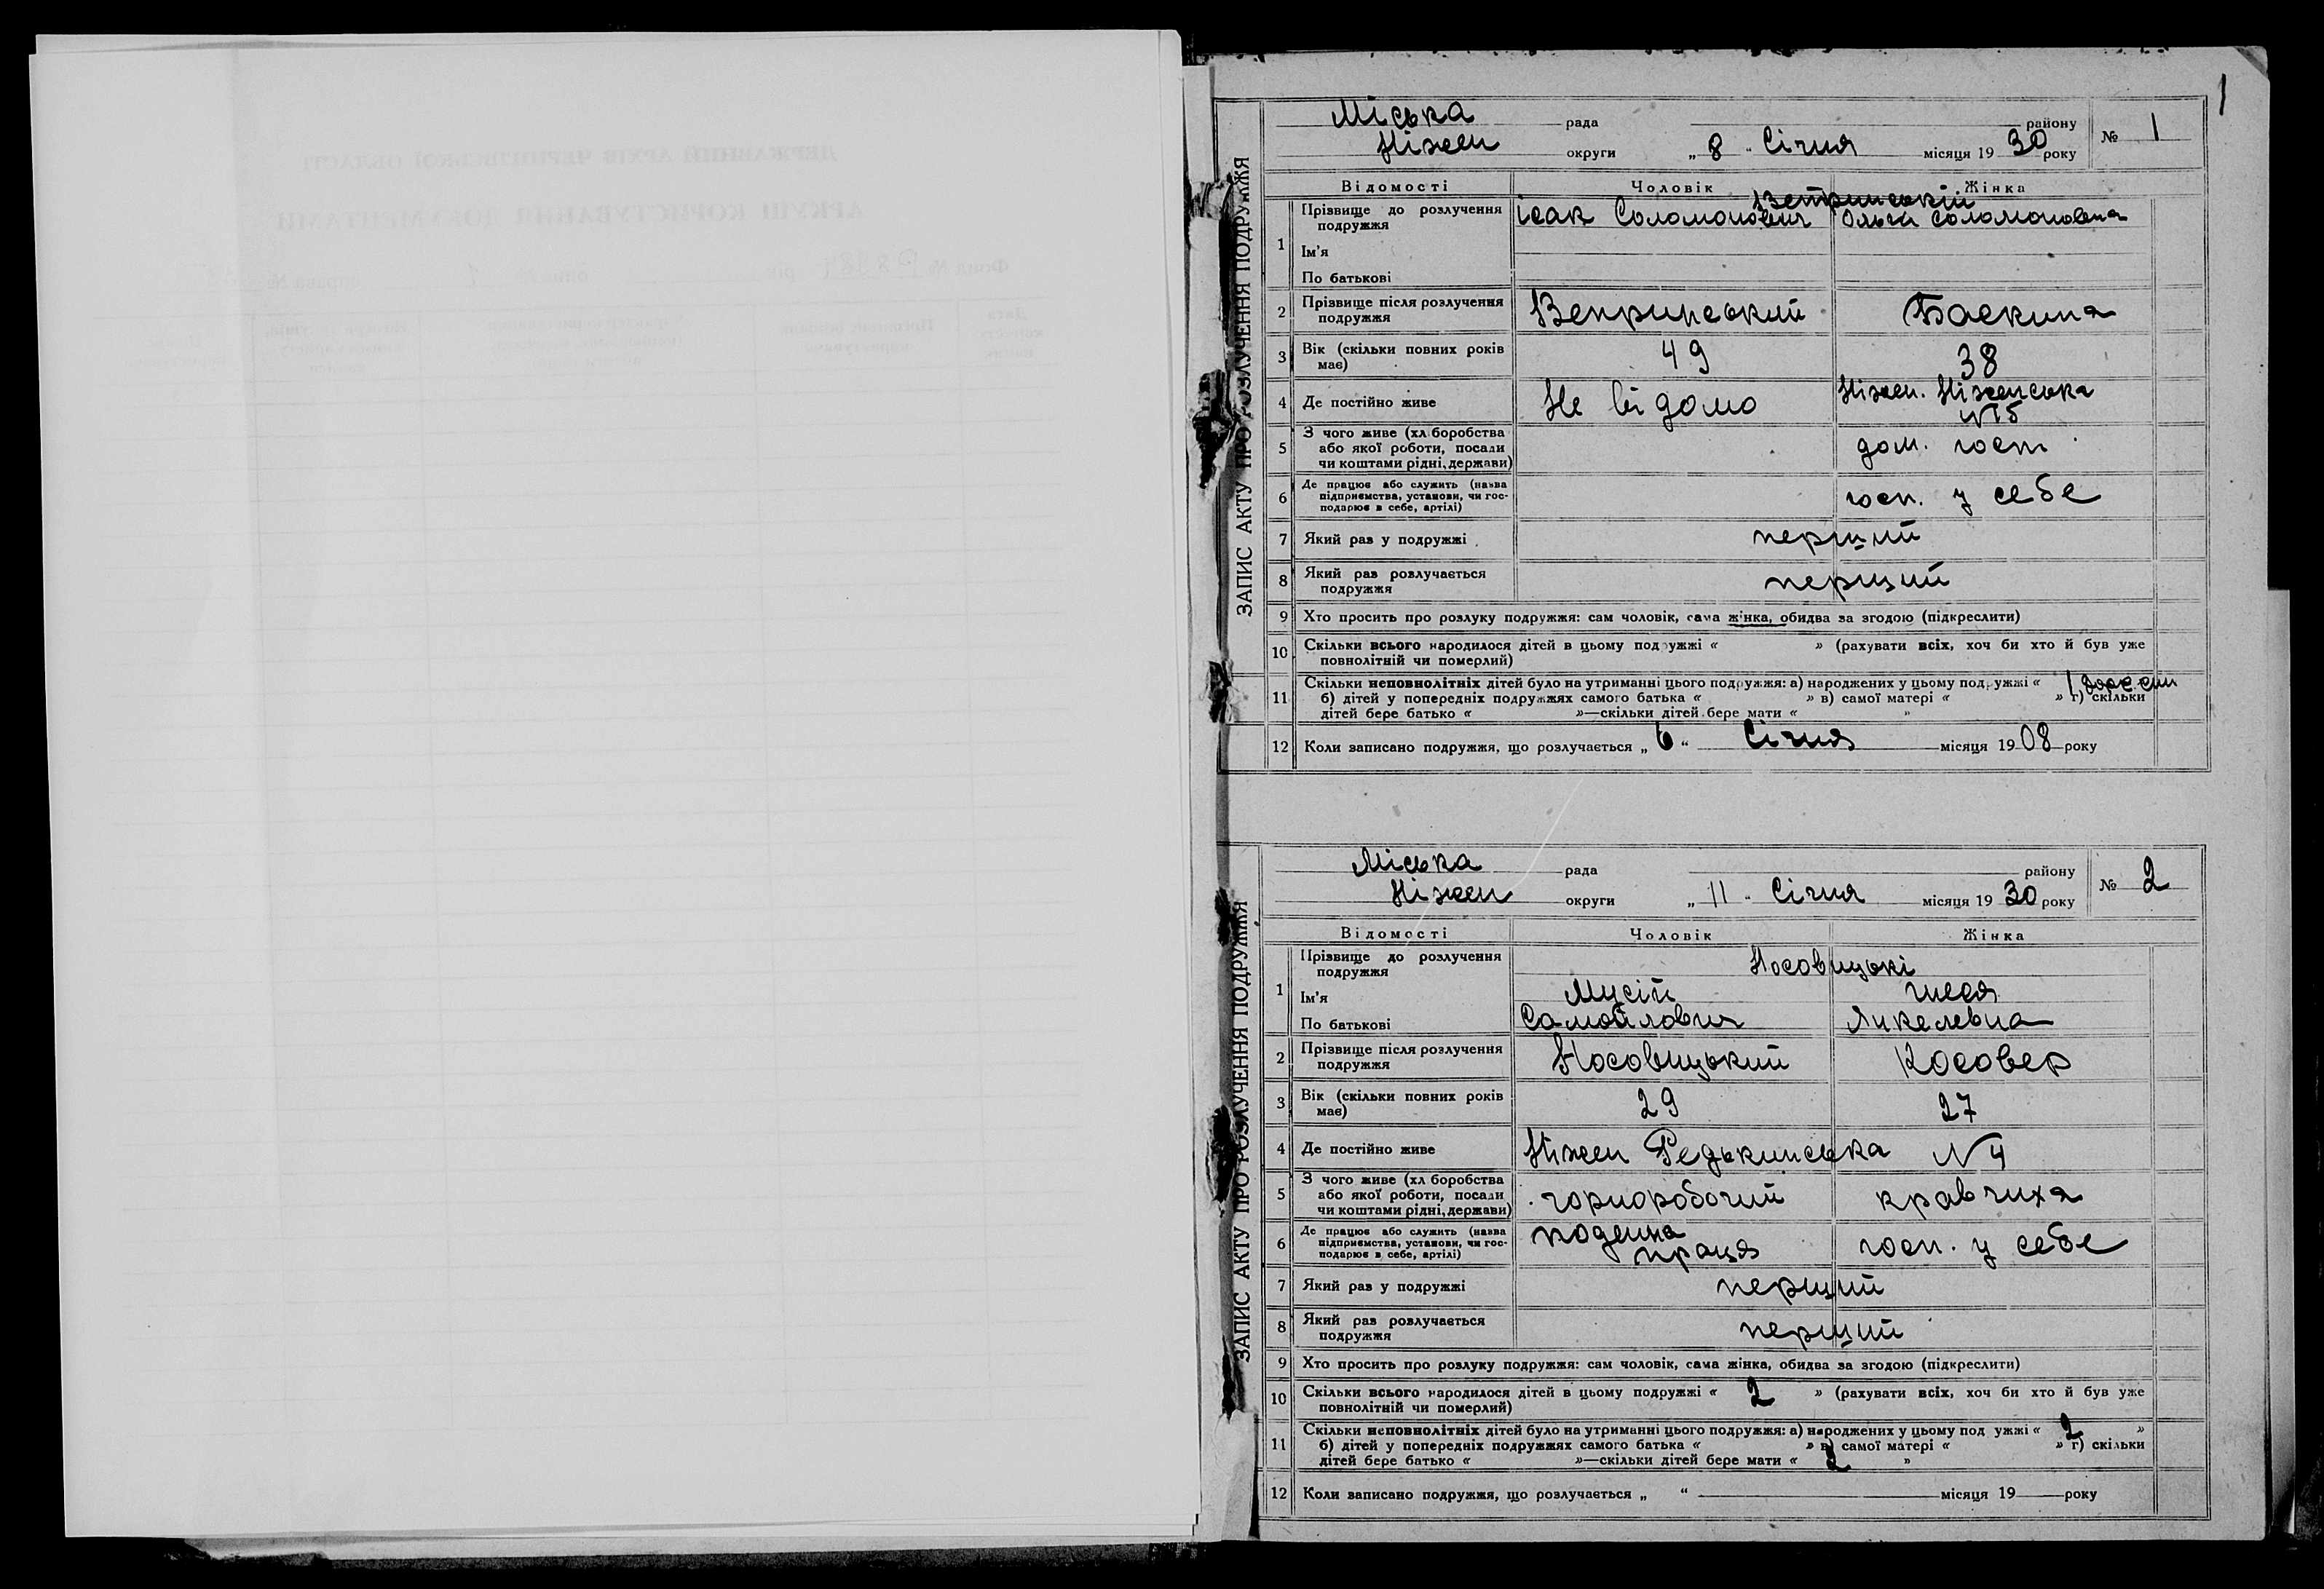 1
ЗАПИС АКТУ ПРО РОЗЛУЧЕННЯ ПОДРУЖЖЯ
Міська рада району
Ніжен округи „ 8 " Січня місяця 19 30 року
№ 1
Відомості Чоловік Жінка
1 Прізвище до розлучення подружжя
Ісак Соломонович Ольга Соломоновна
Ім'я
По батькові
2 Прізвище після розлучення подружжя Вепринський Баскина
3 Вік (скільки повних років має) 49 38
4 Де постійно живе Не відомо Ніжен. Ніженська
5 З чого живе (хліборобства або якої роботи, посади чи коштами рідні, держави) дом. госп.
6 Де працює або служить (назва підприємства, установи, чи господарює в себе, артілі) госп. у себе
7 Який раз у подружжі перший
8 Який раз розлучається подружжя перший
9 Хто просить про розлуку подружжя: сам чоловік, сама жінка, обидва за згодою (підкреслити)
10 Скільки всього народилося дітей в цьому подружжі « » (рахувати всіх, хоч би хто й був уже
повнолітній чи померлий)
11 Скільки неповнолітніх дітей було на утриманні цього подружжя: а) народжених у цьому подружжі « 1,
б) дітей у попередніх подружжях самого батька « » в) самої матері « » г) скільки
дітей бере батько « »—скільки дітей бере мати « »
12 Коли записано подружжя, що розлучається „ 6 “ Січня місяця 19 08 року
ЗАПИС АКТУ ПРО РОЗЛУЧЕННЯ ПОДРУЖЖЯ
Міська рада району
Ніжен округи „ 11 " Січня місяця 19 30 року
№ 2
Відомості Чоловік Жінка
1 Прізвище до розлучення подружжя Носовицькі
Ім'я Мусій
По батькові Самойлович Янкелевна
2 Прізвище після розлучення подружжя Носовицький Косовер
3 Вік (скільки повних років має) 29 27
4 Де постійно живе Ніжен Редькинська N 4
5 З чого живе (хліборобства або якої роботи, посади чи коштами рідні, держави) чорноробочий кравчиха
6 Де працює або служить (назва підприємства, установи, чи господарює в себе, артілі) поденна праця госп. у себе
7 Який раз у подружжі перший
8 Який раз розлучається подружжя перший
9 Хто просить про розлуку подружжя: сам чоловік, сама жінка, обидва за згодою (підкреслити)
10 Скільки всього народилося дітей в цьому подружжі « 2 » (рахувати всіх, хоч би хто й був уже
повнолітній чи померлий)
11 Скільки неповнолітніх дітей було на утриманні цього подружжя: а) народжених у цьому подружжі « 2 »
б) дітей у попередніх подружжях самого батька « » в) самої матері « » г) скільки
дітей бере батько « »—скільки дітей бере мати « 2 »
12 Коли записано подружжя, що розлучається „ “ місяця 19 року